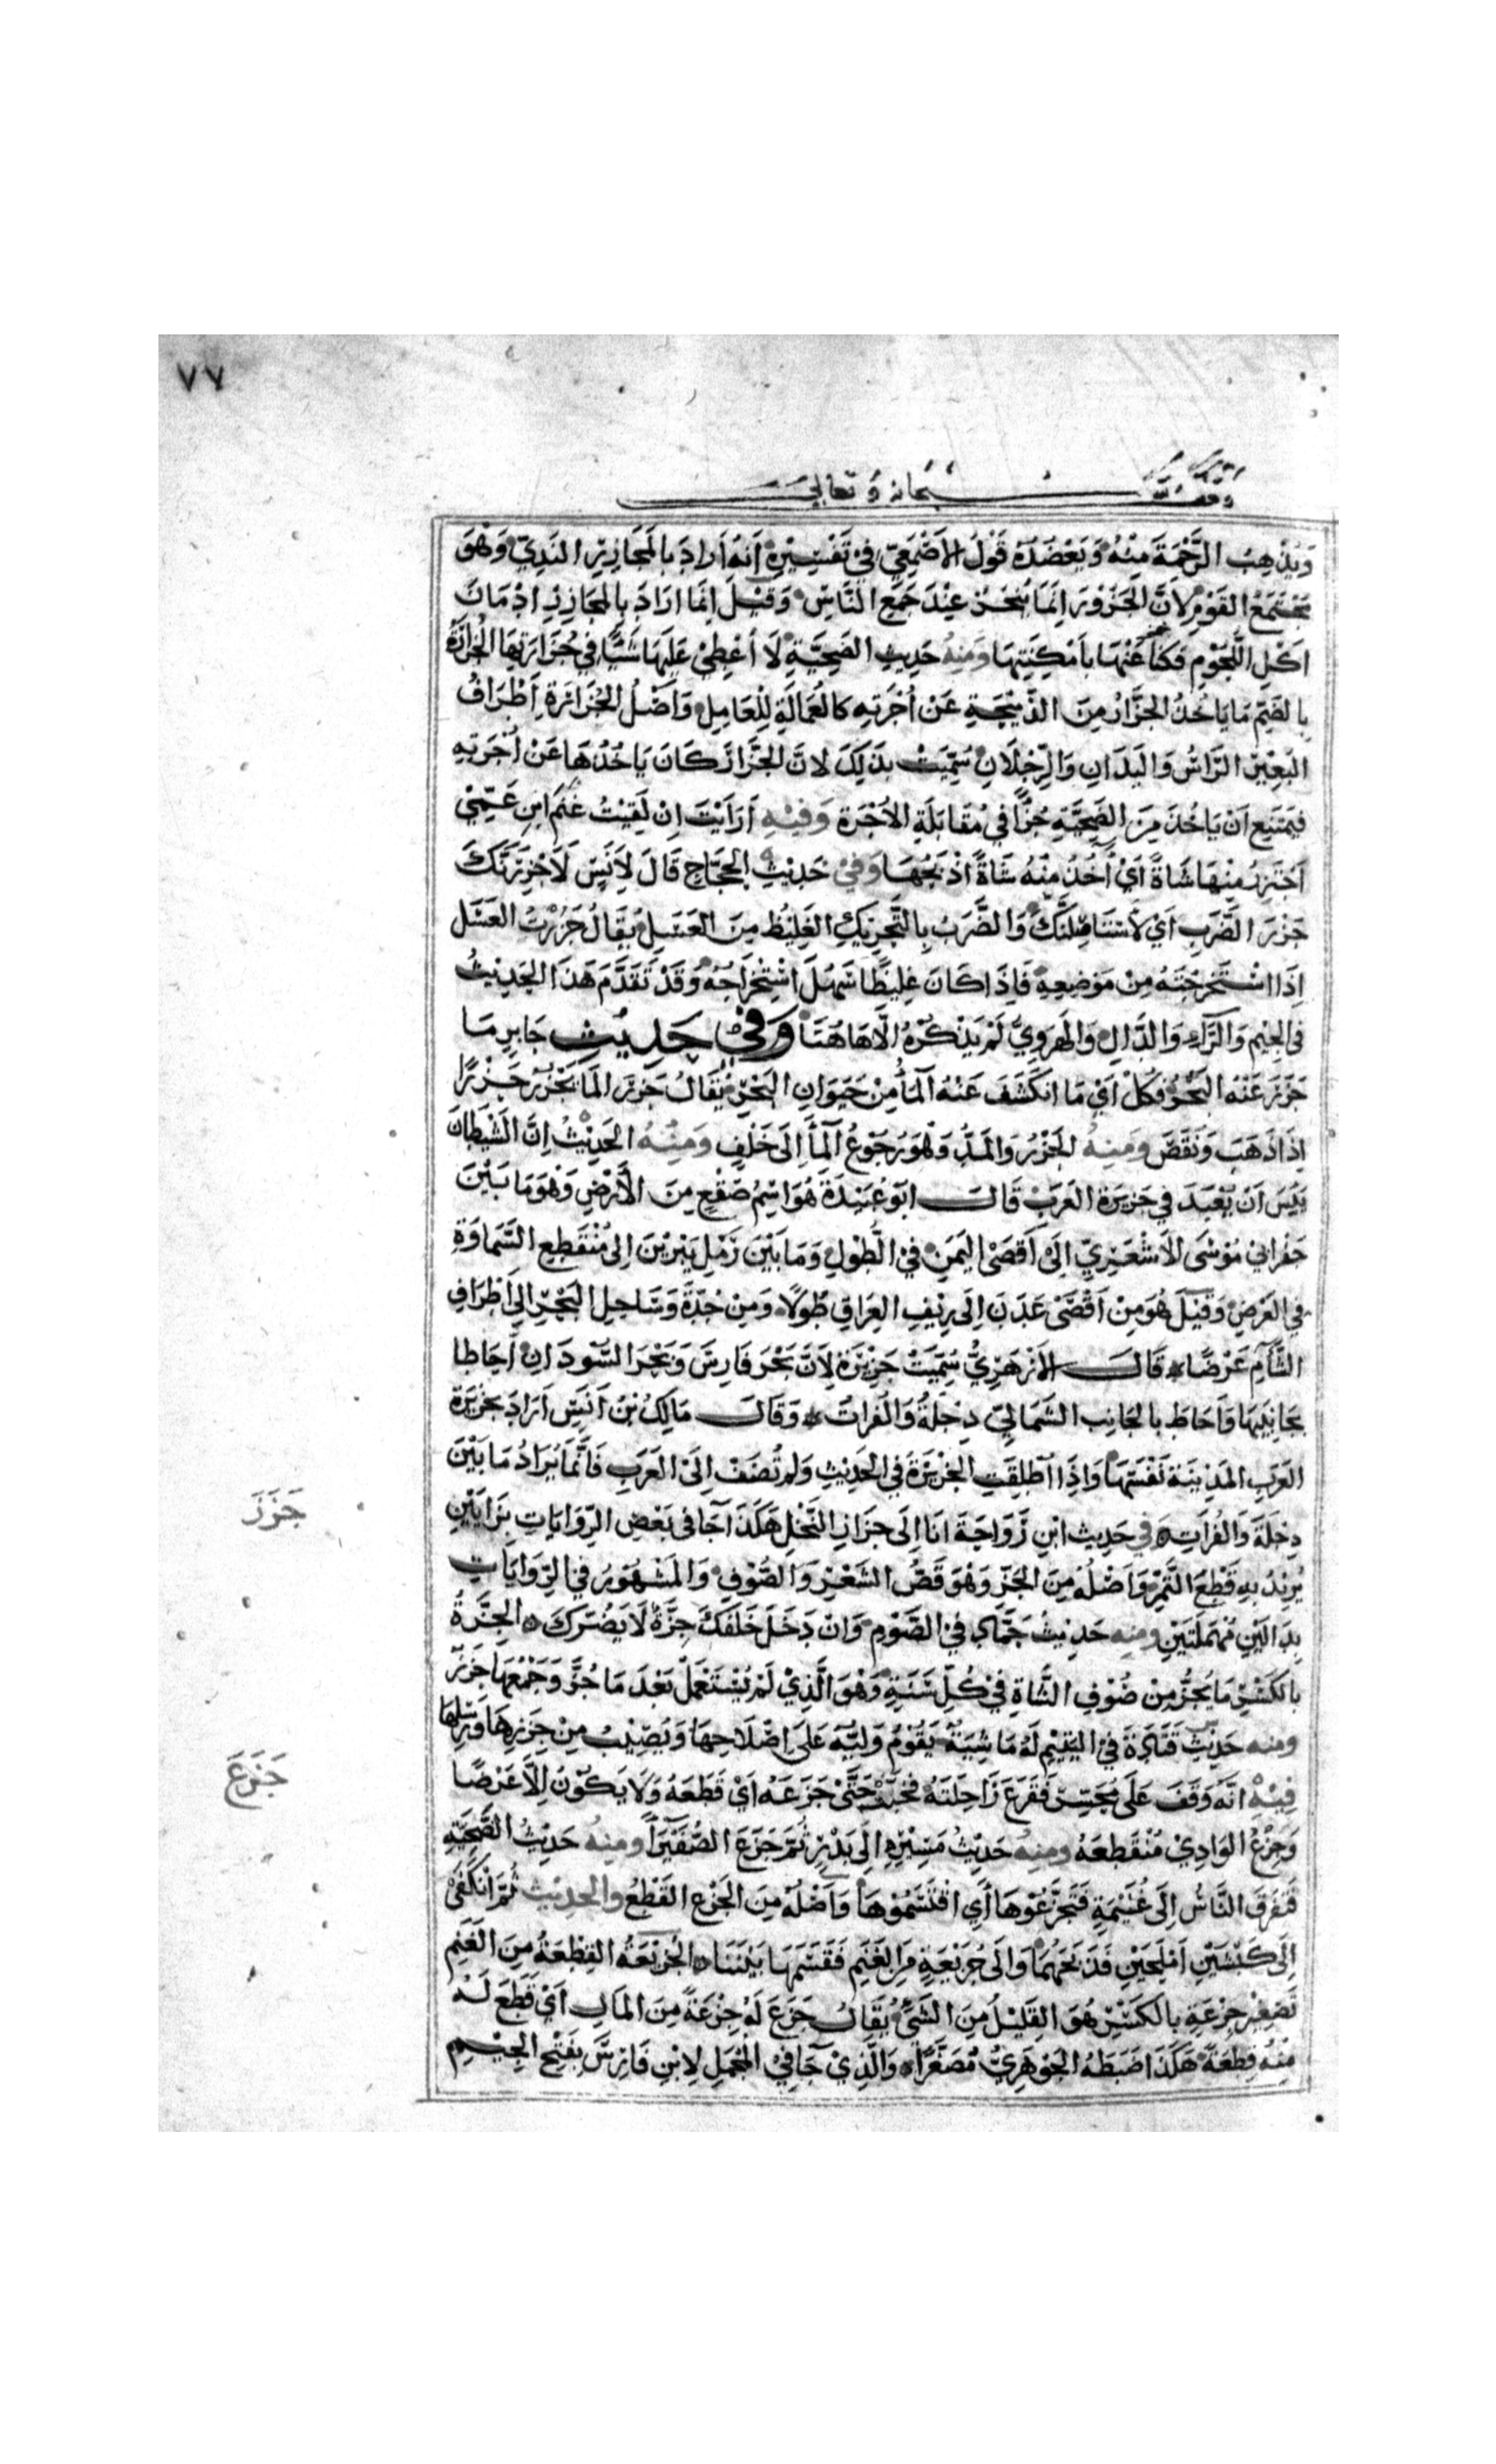 ٧٧
وقف لله سبحانه وتعالى
وَيُذْهِبُ الرَّحْمَةَ مِنْهُ وَيَعْضُدُهُ قَوْلُ الأَصْمَعِيِّ فِي تَفْسِيْرِهِ أَنَّهُ أَرادَ بِالمَجَازِرِ النَدِيَّ وَهُوَ
مُجْتَمَعُ القَوْمِ لِأَنَّ الجَزُوْرَ اِنَّمَا تُنْحَرُ عِنْدَ جَمْعِ النَّاسِ وَقِيْلَ اِنَّمَا ارَادَ بِالمَجَازِرِ اِدْمَانَ
اَكْلِ اللُّحُوْمِ فَكَنَا عَنْهَا بِاَمْكِنَتِهَا وَمِنْهُ حَدِيْثِ الضَحِيَّةِ لَا أُعْطِيْ عَلَيْهَا شَيْئًا فِي جُزَارَتِهَا الجُزَارَةُ
بِالضَّمِّ مَا يَاخُذُ الجَزَّارُ مِنَ الذَّبِيْحَةِ عَنْ اُجْرَتِهِ كَالعُمَالَةِ لِلْعَامِلِ وَاَصْلُ الجُزَارَةِ اَطْرَافُ
البَعِيْرِ الرَّاسُ وَاليَدَانِ وَالرِّجْلَانِ سُمِّيَتْ بِذَلِكَ لانَّ الجَزَّارَ كَانَ يَاخُذُهَا عَنْ اُجْرَتِهِ
فَيُمْنَعَ اَنْ يَاخُذَ مِنَ الضَحِيَّةِ جُزْأً فِي مُقَابَلَةِ الاُجْرَةِ وَفِيْهِ أَرَاَيْتَ اِنْ لَقِيْتُ غَنَمَ ابنِ عَمِّيْ
اَجْتَزِرُ مِنْهَا شَاةً اَيْ أَخُذُ مِنْهُ شَاةً اَذْبَحُهَا وَفِيْ حَدِيْثِ الحَجَّاجِ قَالَ لِأَنَسٍ لَأَجْزِرَنَّكَ
جَزْرَ الضَّرَبِ اَيْ لَاَسْتَاصِلَنَّكَ وَالضَّرَبُ بِالتَّحْرِيْكِ الغَلِيْظُ مِنَ العَسَلِ يُقَالُ جَزَرْتُ العَسَلَ
اِذَا اسْتَخْرَجْتَهُ مِنْ مَوْضِعِهِ فَاِذَا كَانَ غَلِيْظًا سَهُلَ اسْتِخْرَاجُهُ وَقَدْ تَقَدَّمَ هَذَا الحَدِيْثُ
فِي الجِيْمِ وَالرَّاءِ وَالدَّالِ وَالهَرَوِيُّ لَمْ يَذْكُرْهُ اِلَّا هَاهُنَا وَفِيْ حَدِيْثِ جَابِرٍ مَا
جَزَرَ عَنْهُ البَحْرُ فَكُلْ اَيْ مَا انكَشَفَ عَنْهُ المَاءُ مِنْ حَيَوَانِ البَحْرِ يُقَالُ جَزَرَ المَاءُ يَجْزُرُ جَزْرًا
اِذَا ذَهَبَ وَنَقَصَ وَمِنْهُ الجَزْرُ وَالمَدُّ وَهُوَ رُجُوْعُ المَاءِ اِلَى خَلْفٍ وَمِنْهُ الحَدِيْثُ اِنَّ الشَيْطَانَ
يَئِسَ اَنْ يُعْبَدَ فِي جَزِيْرَةِ العَرَبِ قَالَ ابَوْ عُبَيْدَةَ هُوَ اسْمُ صُقْعٍ مِنَ الأَرْضِ وَهُوَ مَا بَيْنَ
حَفَرِ ابِيْ مُوْسَى الاَشْعَرِيِّ اِلَى اَقْصَى اليَمَنِ فِي الطُوْلِ وَمَا بَيْنَ رَمْلِ يَبْرِيْنَ اِلَى مُنْقَطِعِ السَّمَاوَةِ
فِي العَرْضِ وَقِيْلَ هُوَ مِنْ اَقْصَى عَدَنَ اِلَى رِيْفِ العِرَاقِ طُوْلًا وَمِنْ جُدَّةَ وَسَاحِلِ البَحْرِ اِلَى اَطْرَافِ
الشَّاْمِ عَرْضًا قَالَ الأَزْهَرِيُّ سُمِّيَتْ جَزِيْرَةً لِأَنَّ بَحْرَ فَارِسَ وَبَحْرَ السُّودَانِ اَحَاطَا
بِجَانِبَيْهَا وَاَحَاطَ بِالجَانِبِ الشَمَاليِّ دِجْلَةُ وَالفُرَاتُ وَقَالَ مَالِكُ بْنُ اَنَسٍ اَرَادَ بِجَزِيْرَةِ
العَرَبِ المَدِيْنَةَ نَفْسَهَا وَاِذَا اُطْلِقَتِ الجَزِيْرَةُ فِي الحَدِيْثِ وَلَمْ تُضَفْ اِلَى العَرَبِ فَاِنَّمَا يُرَادُ مَا بَيْنَ
جَزَزَ
دِجْلَةَ وَالفُرَاتِ فِي حَدِيث ابنِ رَوَاحَةَ انَا اِلَى جَزَازِ النَّخْلِ هَكَذَا جَا فى بَعْضِ الرِّوَايَاتِ بِزَايَيْنِ
يُرِيْدُ بِهِ قَطْعَ التَّمْرِ وَاَصْلُهُ مِنَ الجَزِّ وَهُوَ قَصُّ الشَعْرِ وَالصُّوْفِ وَالمَشْهُوْرُ فِي الرِّوَايَاتِ
بِدَالَيْنِ مُهْمَلَتَيْنِ وَمِنْهُ حَدِيْثُ حَمَّادٍ فِي الصَّوْمِ وَاِنْ دَخَلَ حَلْقَكَ جِزَّةٌ لَا يَضُرُّكَ الجِزَّةُ
بِالكَسْرِ مَا يُجَزُّ مِنْ صُوْفِ الشَّاةِ فِيْ كُلِّ سَنَةٍ وَهْوَ الَّذِيْ لَمْ يُسْتَعْمَلْ بَعْدَ مَا جُزَّ وَجَمْعُهَا جِزَزٌ
وَمنه حَدِيْثُ قَتَادَةَ فِي اليَتِيْمِ لَهُ مَاشِيَةٌ يَقُوْمُ وَلِيُّهُ عَلَى اِصْلَاحِهَا وَيُصِيْبُ مِنْ جِزَزِهَا وَرِسْلِهَا
جَزَعَ
فِيْهْ انَّهُ وَقَفَ عَلَى مُحَسِّرٍ فَقَرَعَ رَاحِلَتَهُ فَخَبَّتْ حَتَّى جَزَعَهُ اَيْ قَطَعَهُ وَلَا يَكُوْنُ اِلَّا عَرْضًا
وَجِزْعُ الوَادِيْ مُنْقَطَعُهُ وَمِنْهُ حَدِيْثُ مَسِيْرِهِ اِلَى بَدْرٍ ثُمَّ جَزَعَ الصُّفَيْرَاءَ وَمِنْهُ حَدِيْثُ الضَحِيَّةِ
فَتَفَرَّقَ النَّاسُ اِلَى غُنَيْمَةٍ فَتَجَزَّعُوْهَا أَيِ اقْتَسَمُوْهَا وَاَصْلُهُ مِنَ الجَزْعِ القَطْعُ وَالحَدِيْث ثُمَّ انْكَفَى
اِلَى كَبْشَيْنِ اَمْلَحَيْنِ فَذَبَحَهُمَا وَالَى جُزَيْعَةٍ مِنَ الغَنَمِ فَقَسَمَهَا بَيْنَنَا الجُزَيْعَةُ القِطْعَةُ مِنَ الغَنَمِ
تَصْغِيْرُ جِزْعَةٍ بِالكَسْرِ هُوَ القَلِيْلُ مِنَ الشَيْءِ يُقَالُ جَزَعَ لَهُ جِزْعَةً مِنَ المَالِ اَيْ قَطَعَ لَهُ
مِنْهُ قِطْعَةً هَكَذَا ضَبَطَهُ الجَوْهَرِيُّ مُصَغَّرًا وَالَّذِيْ جَا فِي المُجْمَلِ لِابْنِ فَارِسٍ بِفَتْحِ الجِيْمِ